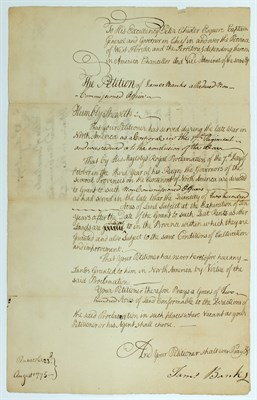 To His Excellency Peter Chester Esquire Captain
General and Governor in Chief in and over the Province
of West Florida and the Territories depending thereon
in America Chancellor and Vice Admiral of the same &c
The Petition of James Banks a Reduced Non
Commissioned Officer
Humbly Sheweth
That your Petitioner has served during the late War in
North America as a in the Regiment
and was reduced at the conclusion of the War
That by His Majestys Royal Proclamation of the 7th day of
October in the Third Year of his Reign the Governors of the
several Provinces on the Continent of North America are directed
to Grant to such Non Commissioned Officers
as had served in the late War the Quantity of Two hundred
Acres of Land Subject at the Expiration of Ten
years after the Date of the Grant to such Quit Rents as other
Lands are to in the Province within which they are
Granted and also Subject to the same Conditions of Cultivation
and improvement.
That your Petitioner has never heretofore had any
Lands Granted to him in North America by Virtue of the
said Proclamation
Your Petitioner therefore Prays a Grant of Two
hundred Acres of Land Conformable to the Directions of
the said Proclamation in such place when Vacant as your
Petitioner or his Agent shall chose
And your Petitioner shall ever Pray &c
James Banks
August 1776